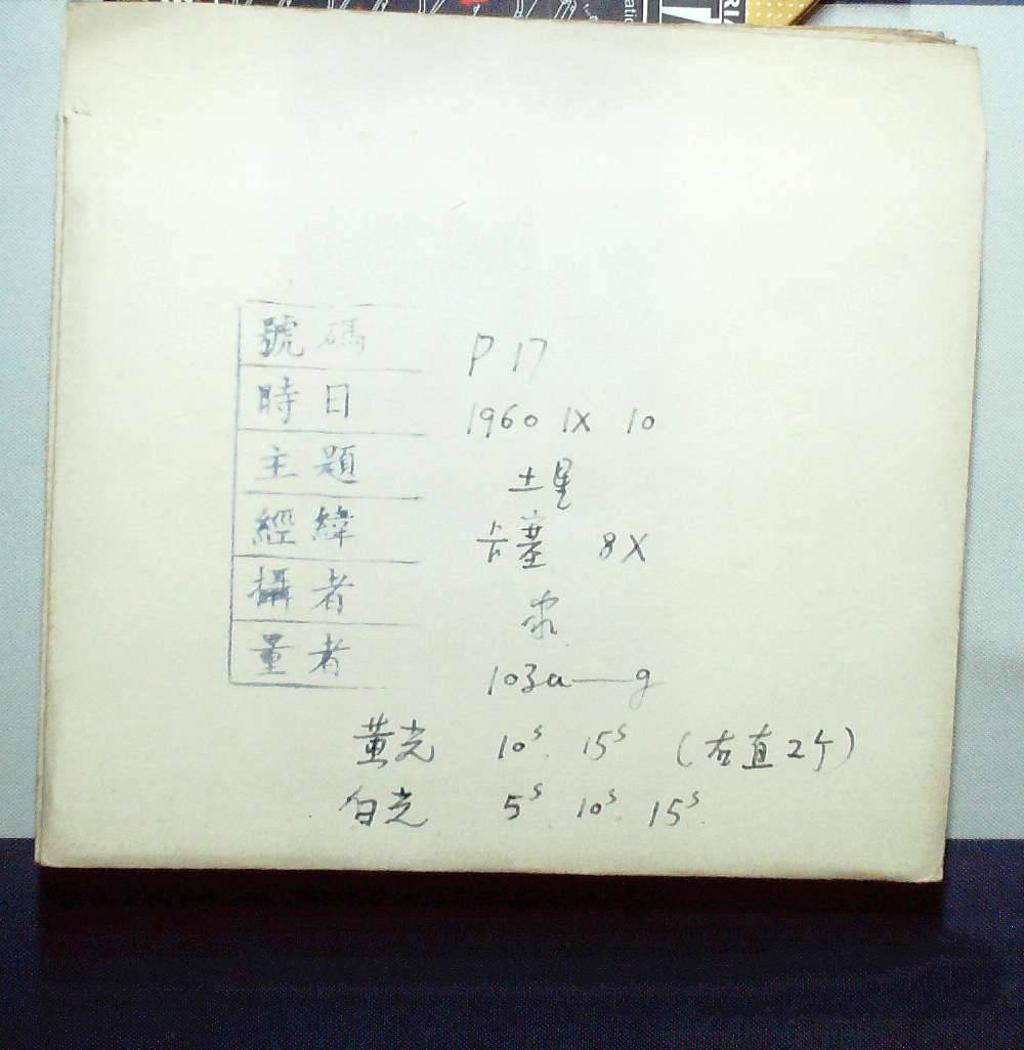 RIA
ati
號碼 P 17
時日 1960 IX 10
主題 土星
經緯 卡塞 8X
攝者
量者 103a—g
黄光 10ˢ. 15ˢ (右直2个)
白光 5ˢ 10ˢ. 15ˢ.